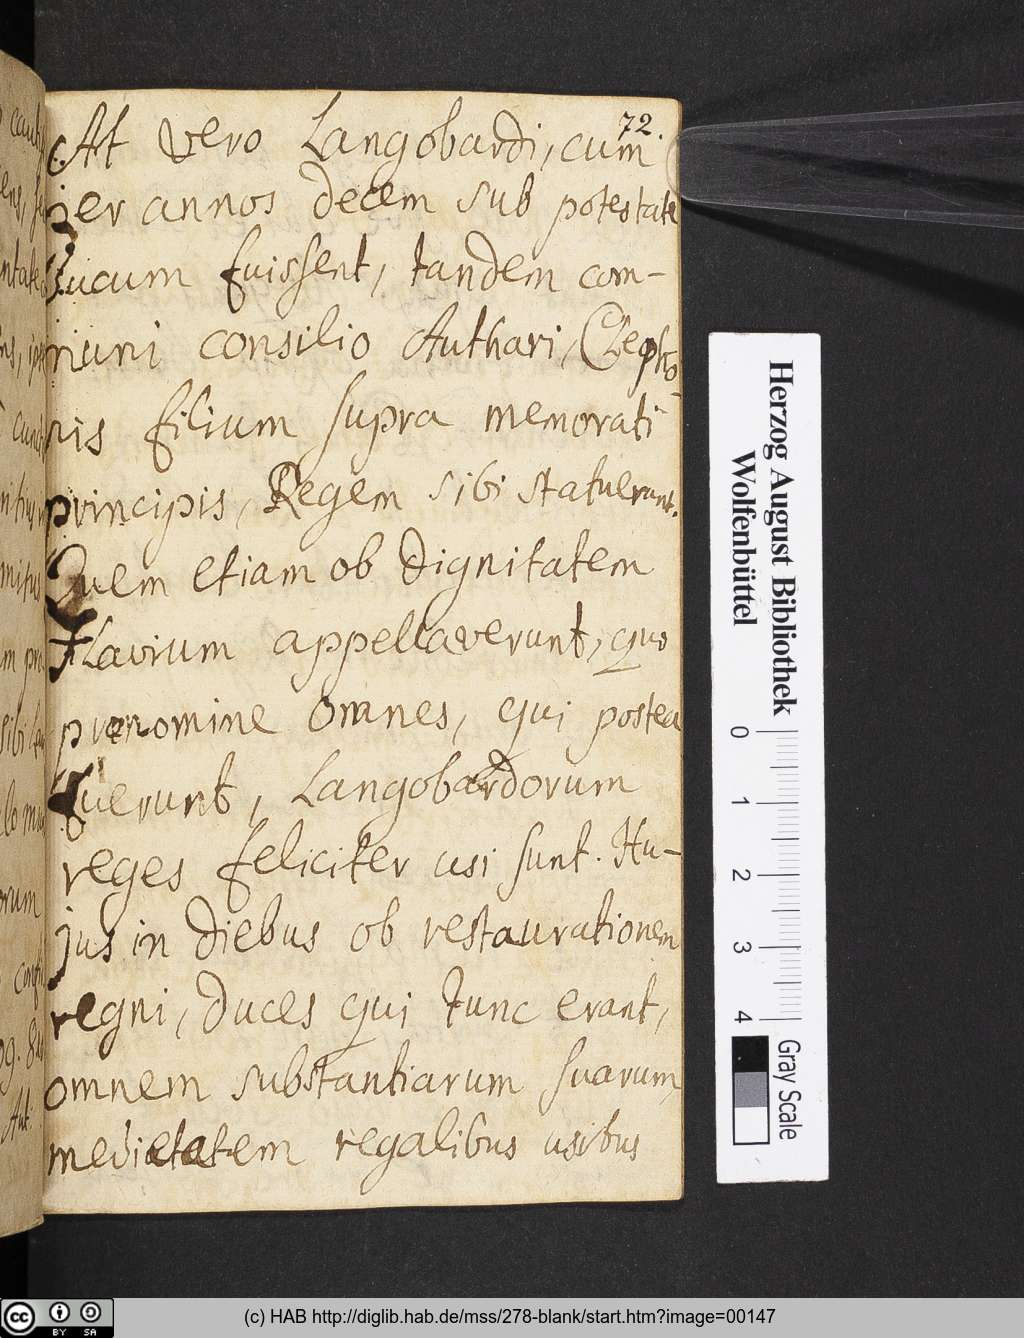 72.
At vero Langobardi, cum
per annos decem sub potestate
Ducum fuissent, tandem com-
muni consilio Authari, Clepho-
nis filium supra memorati
principis, Regem sibi statuerunt.
Quem etiam ob dignitatem
Flavium appellaverunt, quo
prænomine omnes, qui postea
fuerunt, Langobardorum
reges feliciter usi sunt. Hu-
jus in diebus ob restaurationem
regni, duces qui tunc erant,
omnem substantiarum suarum
medietatem regalibus usibus
Herzog August Bibliothek
Wolfenbüttel
0 1 2 3 4
Gray Scale
(c) HAB http://diglib.hab.de/mss/278-blank/start.htm?image=00147
cc BY SA